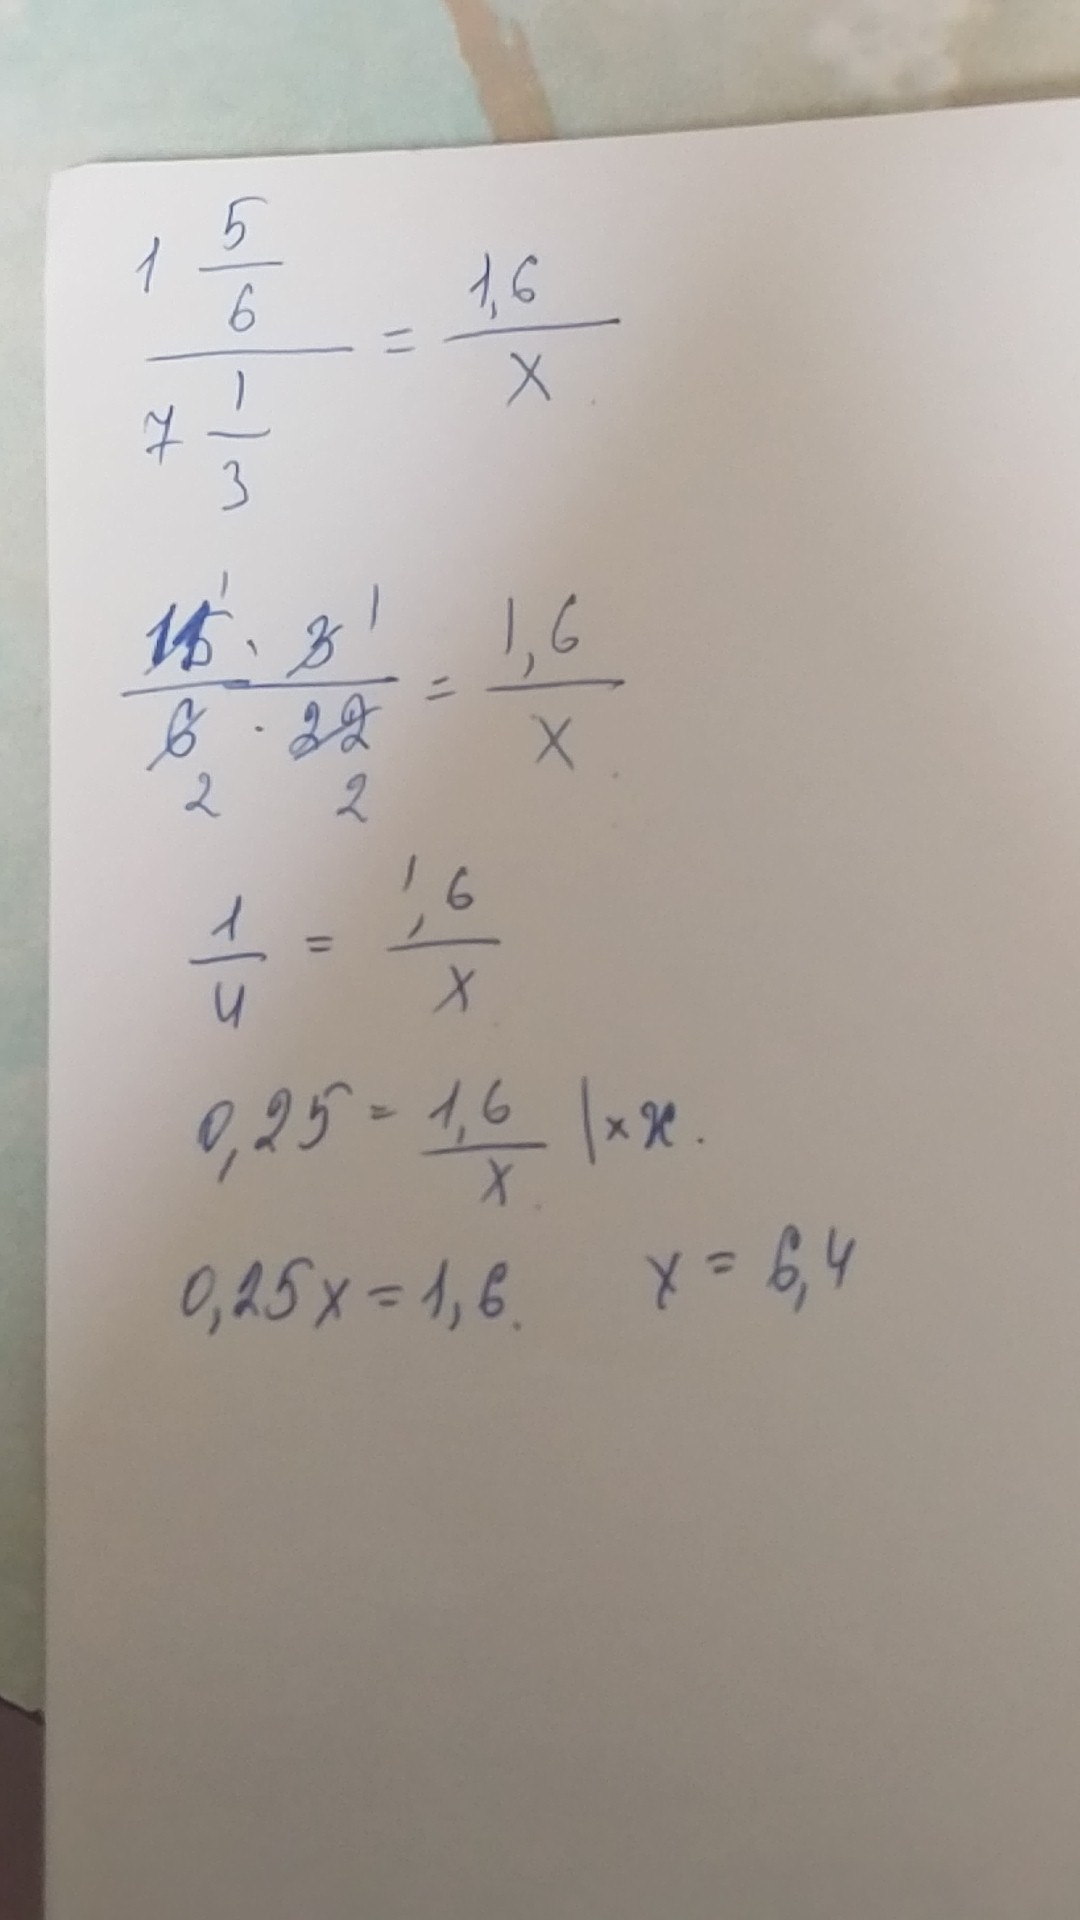 1 5/6 / 7 1/3 = 1,6 / x
11 · 3 / 6 · 22 = 1,6 / x
1 1
2 2
1/4 = 1,6 / x
0,25 = 1,6 / x | × x.
0,25x = 1,6. x = 6,4